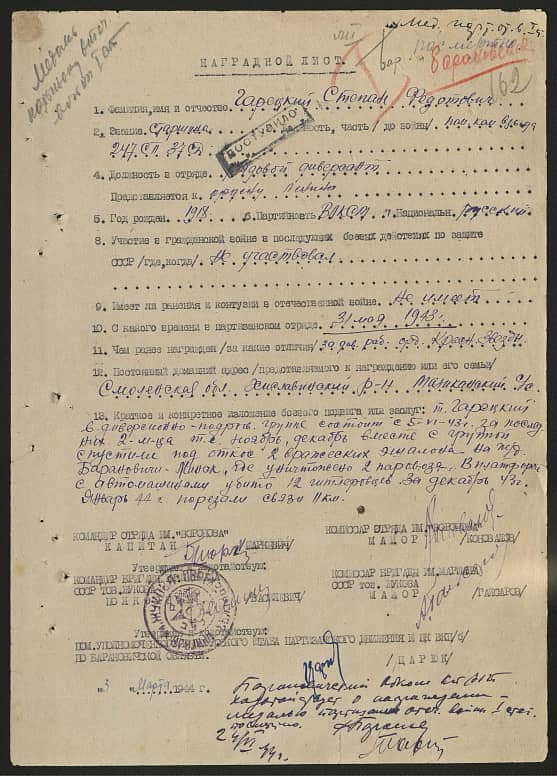 Медаль
парт. от. в. I ст.
посмертно
Барановская
62
НАГРАДНОЙ ЛИСТ.
ПОСТУПИЛО
1. Фамилия, имя и отчество Гарецкий Степан Федотович
2. Звание Старшина часть / до войны / пом. ком взвода
247 СП 37 СД
4. Должность в отряде рядовой диверсант
Представляется к ордену Ленина
5. Год рожден. 1918 6. Партийность ВЛКСМ 7. Национальн. Русский
8. Участие в гражданской войне и последующих боевых действиях по защите
СССР /где, когда/ Не участвовал
9. Имеет ли ранения и контузии в отечественной войне. Не имеет
10. С какого времени в партизанском отряде. 31 мая 1943 г.
11. Чем ранее награжден /за какие отличия/ за див. раб. орд. Красн. Звезды
12. Постоянный домашний адрес /представляемого к награждению или его семьи/
Смоленская обл. Хиславичский р-н
13. Краткое и конкретное изложение боевого подвига или заслуг: т. Гарецкий
в диверсионно-подрыв. группе состоит с 5-VI-43 г. за послед
них 2 м-ца т.е. ноябрь, декабрь вместе с группой
спустили под откос 2 вражеских эшалона на ж/д.
Барановичи-Минск, где уничтожено 2 паровоза, 8 платформ
с автомашинами убито 12 гитлеровцев за декабрь 43 г.
Январь 44 г порезали связи 11 км.
КОМАНДИР ОТРЯДА ИМ. "ВОРОНОВА" КОМИССАР ОТРЯДА ИМ. "ВОРОНОВА"
КАПИТАН МАЙОР /КОНОВАЛОВ/
КОМАНДИР БРИГАДЫ КОМИССАР БРИГАДЫ ИМ. МАРШАЛА
СССР ТОВ. ЖУКОВА СССР тов. ЖУКОВА
МАЙОР /ГАПСАРОВ/
ШТАБА ПАРТИЗАНСКОГО ДВИЖЕНИЯ И ЦК КП/б/Б
ПО БАРАНОВИЧСКОЙ ОБЛАСТИ.
/ЦАРЮК/
3 Марта 1944 г.
Барановичский обком КП/б/Б
ходатайствует о награждении
медалью партизана отеч. войны I степ.
посмертно.